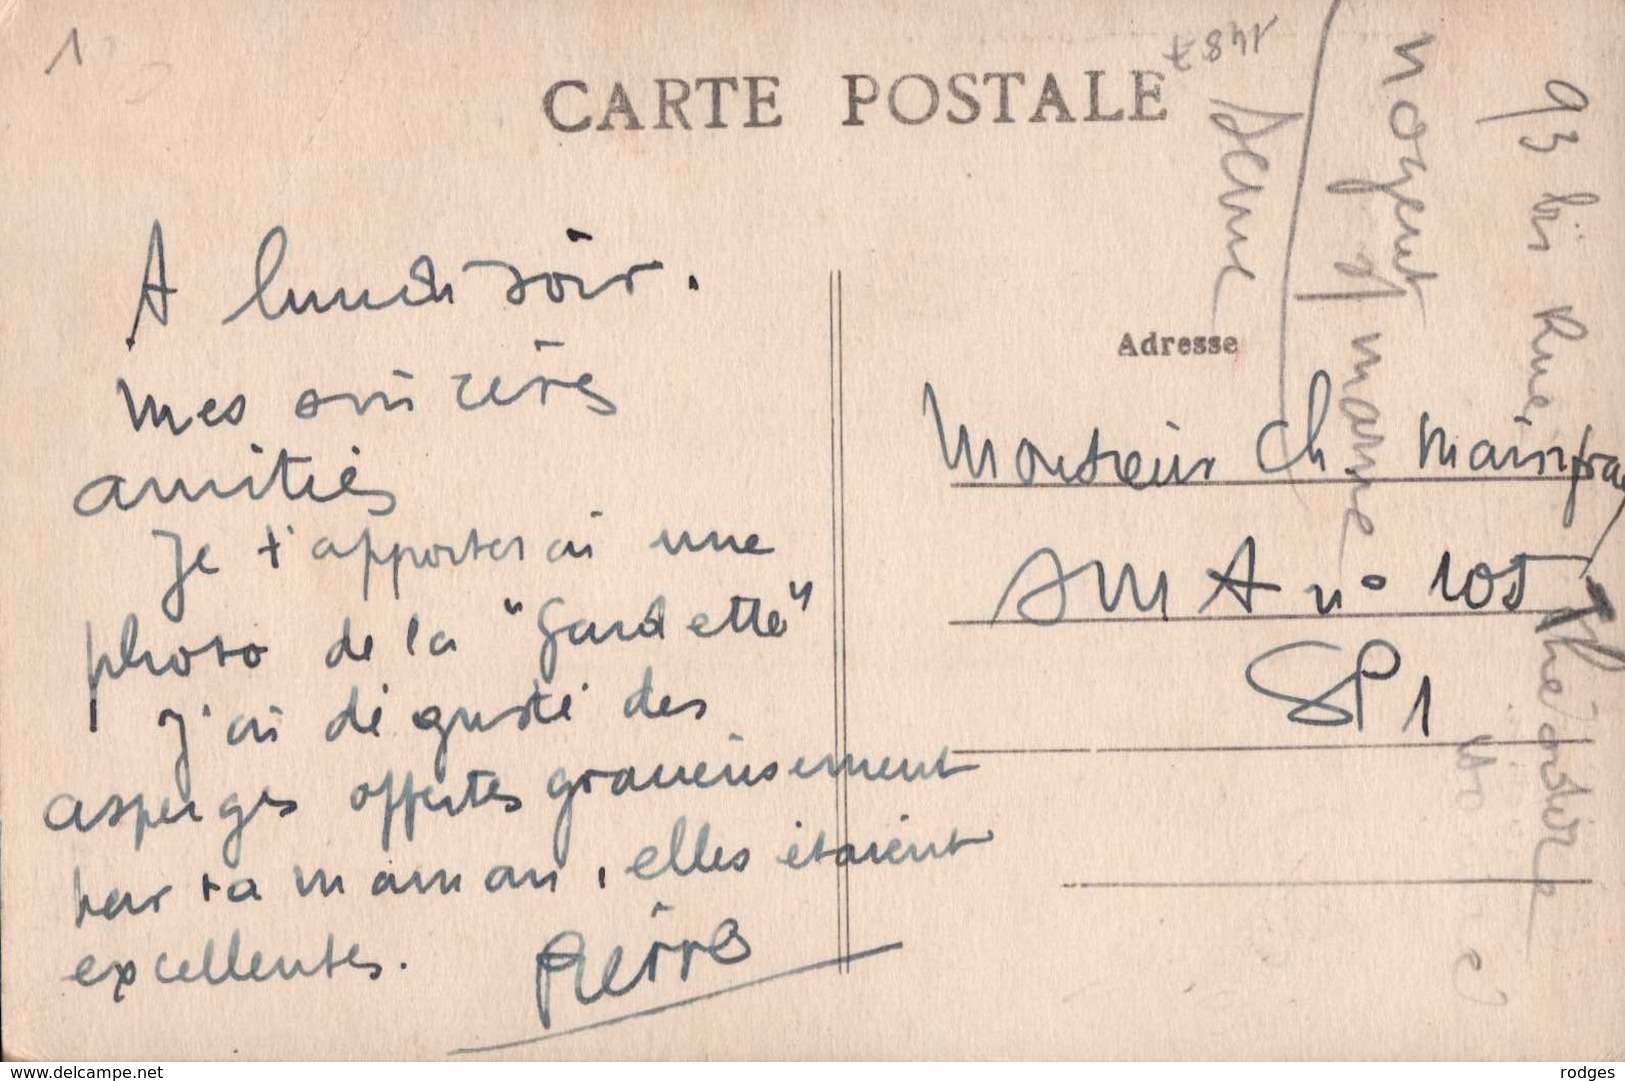 1
CARTE POSTALE
1487
A lundi soir.
mes sincères
amitiés
Je t'apporterai une
photo de la "Gardette"
J'ai dégusté des
asperges offertes gracieusement
par ta maman, elles étaient
excellentes. Pierre
Adresse
Monsieur Ch. Mainfray
SMA n° 105
SP 1
93 bis Rue Théodore
Nogent s/ marne
Seine
www.delcampe.net
rodges